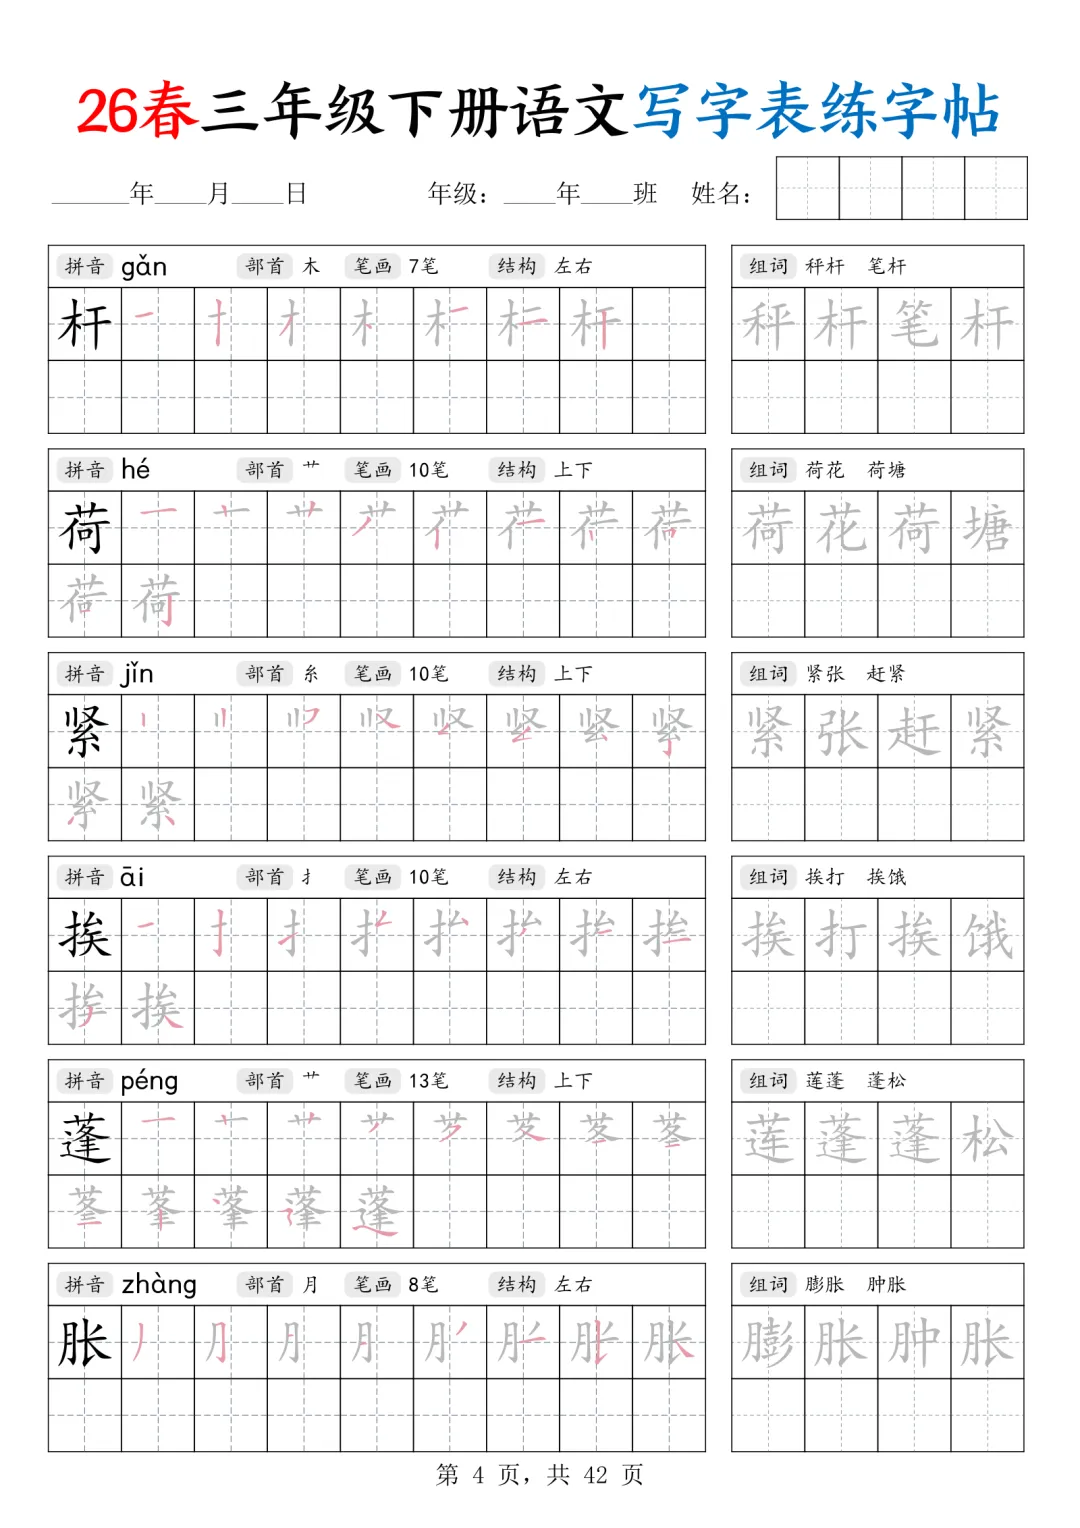 26春三年级下册语文写字表练字帖
______年____月____日 年级：____年____班 姓名：
拼音 gǎn 部首 木 笔画 7笔 结构 左右 组词 秤杆 笔杆
杆 秤杆笔杆
拼音 hé 部首 艹 笔画 10笔 结构 上下 组词 荷花 荷塘
荷 荷花荷塘
荷
拼音 jǐn 部首 糸 笔画 10笔 结构 上下 组词 紧张 赶紧
紧 紧张赶紧
紧
拼音 āi 部首 扌 笔画 10笔 结构 左右 组词 挨打 挨饿
挨 挨打挨饿
挨
拼音 péng 部首 艹 笔画 13笔 结构 上下 组词 莲蓬 蓬松
蓬 莲蓬蓬松
蓬
拼音 zhàng 部首 月 笔画 8笔 结构 左右 组词 膨胀 肿胀
胀 胀 膨胀肿胀
第 4 页，共 42 页